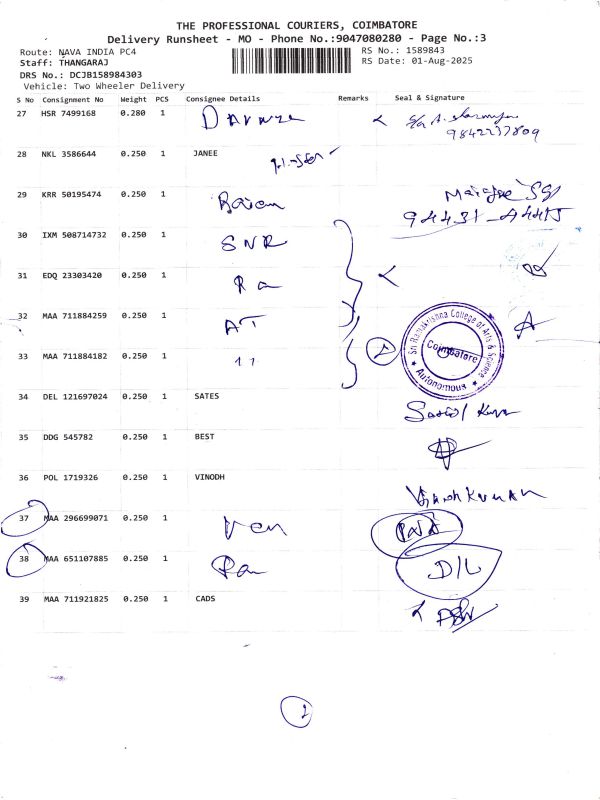 THE PROFESSIONAL COURIERS, COIMBATORE
Delivery Runsheet - MO - Phone No.:9047080280 - Page No.:3
Route: NAVA INDIA PC4
RS No.: 1589843
Staff: THANGARAJ
RS Date: 01-Aug-2025
DRS No.: DCJB158984303
Vehicle: Two Wheeler Delivery
S No Consignment No Weight PCS Consignee Details Remarks Seal & Signature
27 HSR 7499168 0.280 1
9842237809
28 NKL 3586644 0.250 1 JANEE
29 KRR 50195474 0.250 1
30 IXM 508714732 0.250 1 SNR
31 EDQ 23303420 0.250 1 Ra
32 MAA 711884259 0.250 1 AT
33 MAA 711884182 0.250 1 11
Sri Ramakrishna College of Arts & Science
Coimbatore
Autonomous
34 DEL 121697024 0.250 1 SATES
35 DDG 545782 0.250 1 BEST
36 POL 1719326 0.250 1 VINODH
37 MAA 296699071 0.250 1 Ven
38 MAA 651107885 0.250 1 Ra D/L
39 MAA 711921825 0.250 1 CADS
2